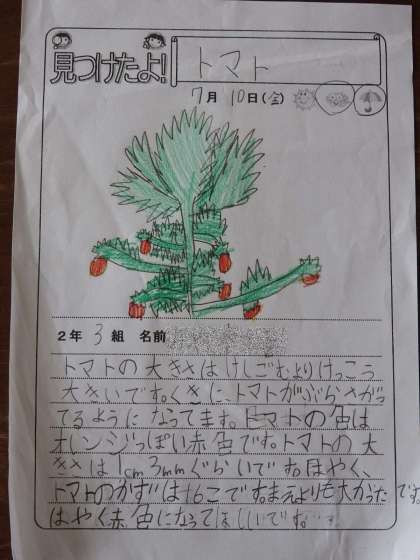 見つけたよ!
トマト
7月 10日(金)
2年 3組 名前
トマトの大きさはけしごむよりけっこう
大きいです。くきに、トマトがぶらさがっ
てるようになってます。トマトの色は
オレンジっぽい赤色です。トマトの大
きさは1cm3mmぐらいです。はやく、
トマトのかずは16こです。まえよりも大かったです。
はやく赤色になってほしいです。